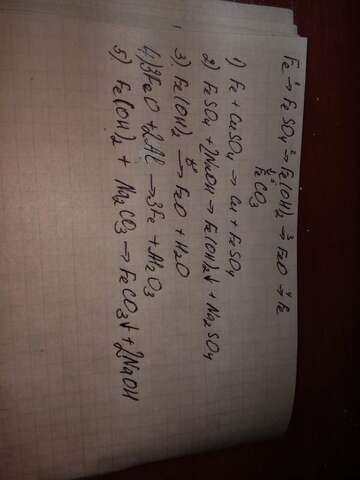 Fe →¹ FeSO₄ →² Fe(OH)₂ →³ FeO →⁴ Fe
↓⁵
FeCO₃
1) Fe + CuSO₄ → Cu + FeSO₄
2) FeSO₄ + 2NaOH → Fe(OH)₂↓ + Na₂SO₄
3) Fe(OH)₂ →t° FeO + H₂O
4) 3FeO + 2Al → 3Fe + Al₂O₃
5) Fe(OH)₂ + Na₂CO₃ → FeCO₃↓ + 2NaOH